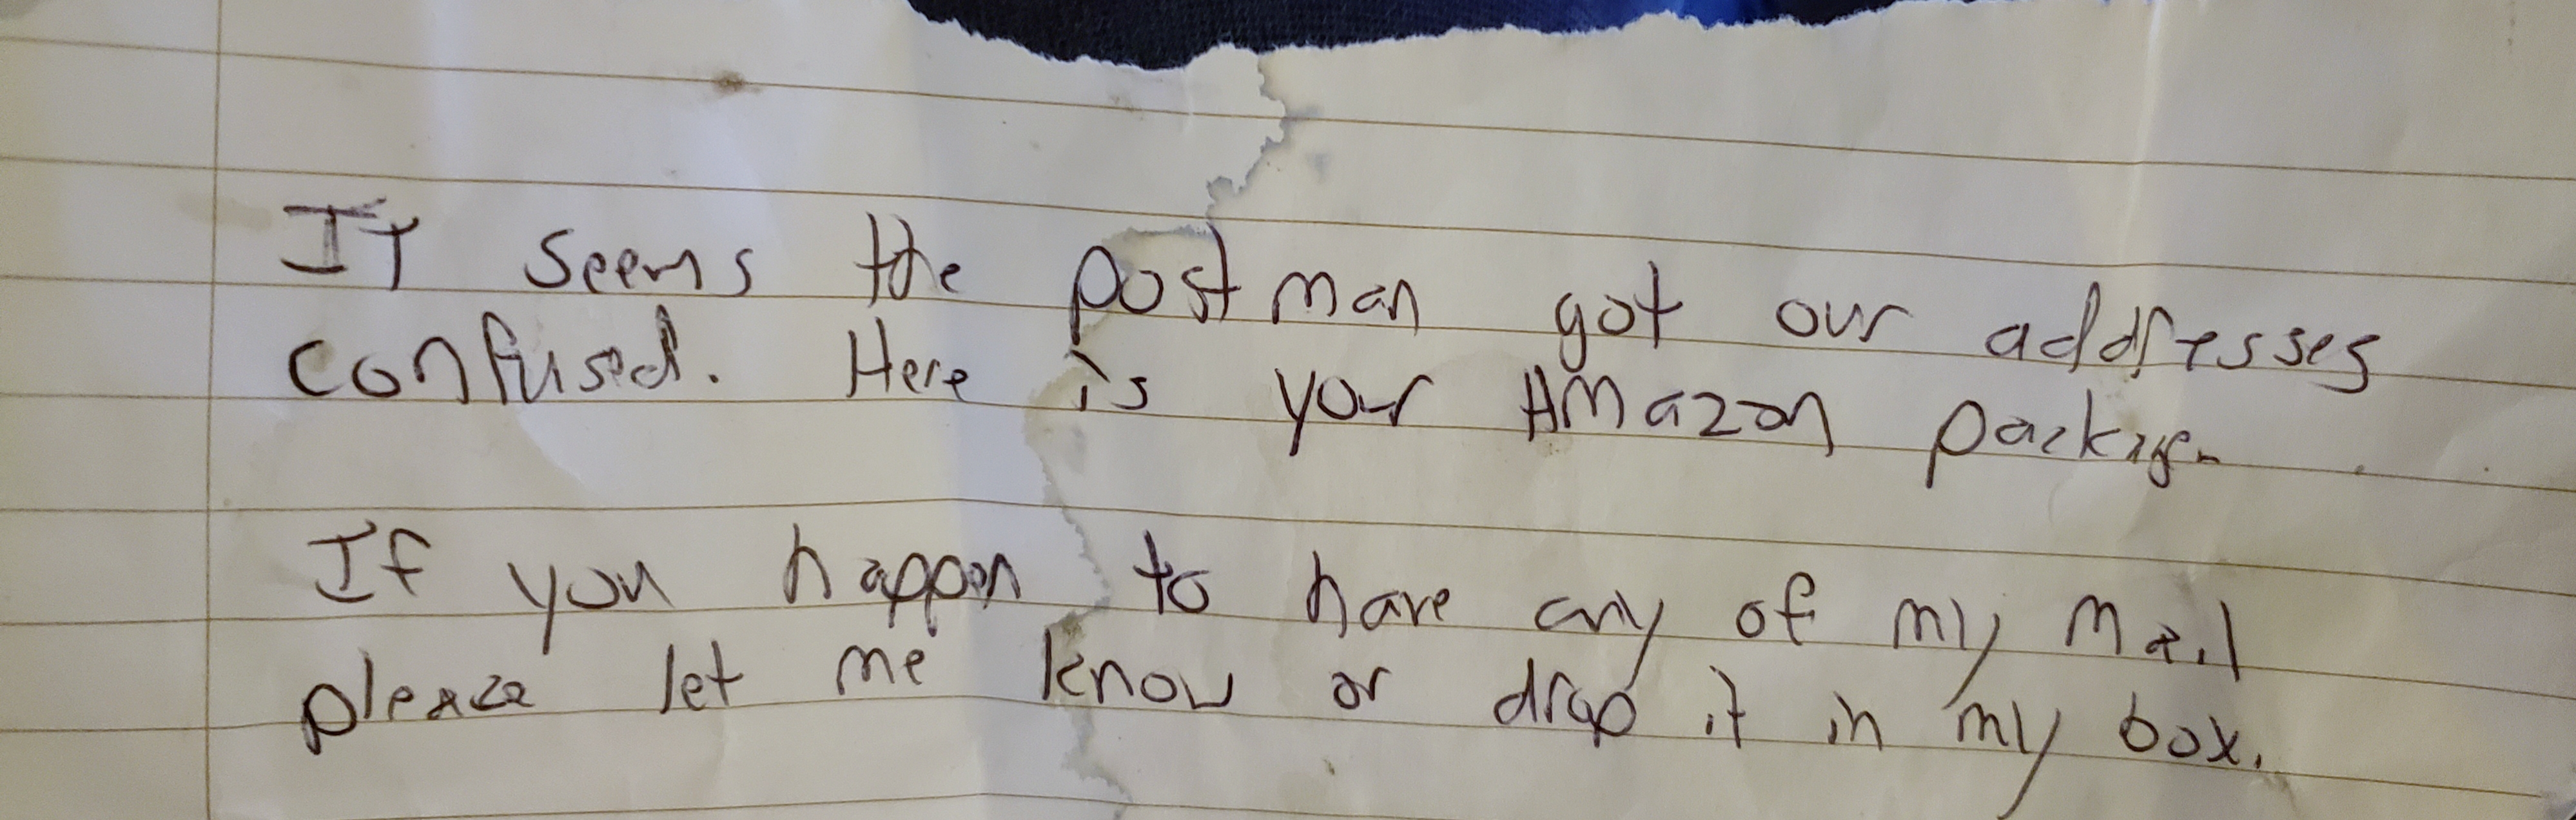 It seems the postman got our addresses
confused. Here is your Amazon package.
If you happen to have any of my mail
please let me know or drop it in my box.